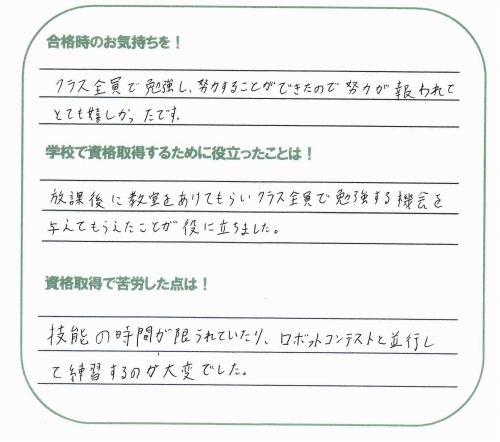 合格時のお気持ちを！
クラス全員で勉強し、努力することができたので努力が報われて
とても嬉しかったです。
学校で資格取得するために役立ったことは！
放課後に教室をあけてもらいクラス全員で勉強する機会を
与えてもらえたことが役に立ちました。
資格取得で苦労した点は！
技能の時間が限られていたり、ロボットコンテストと並行し
て練習するのが大変でした。